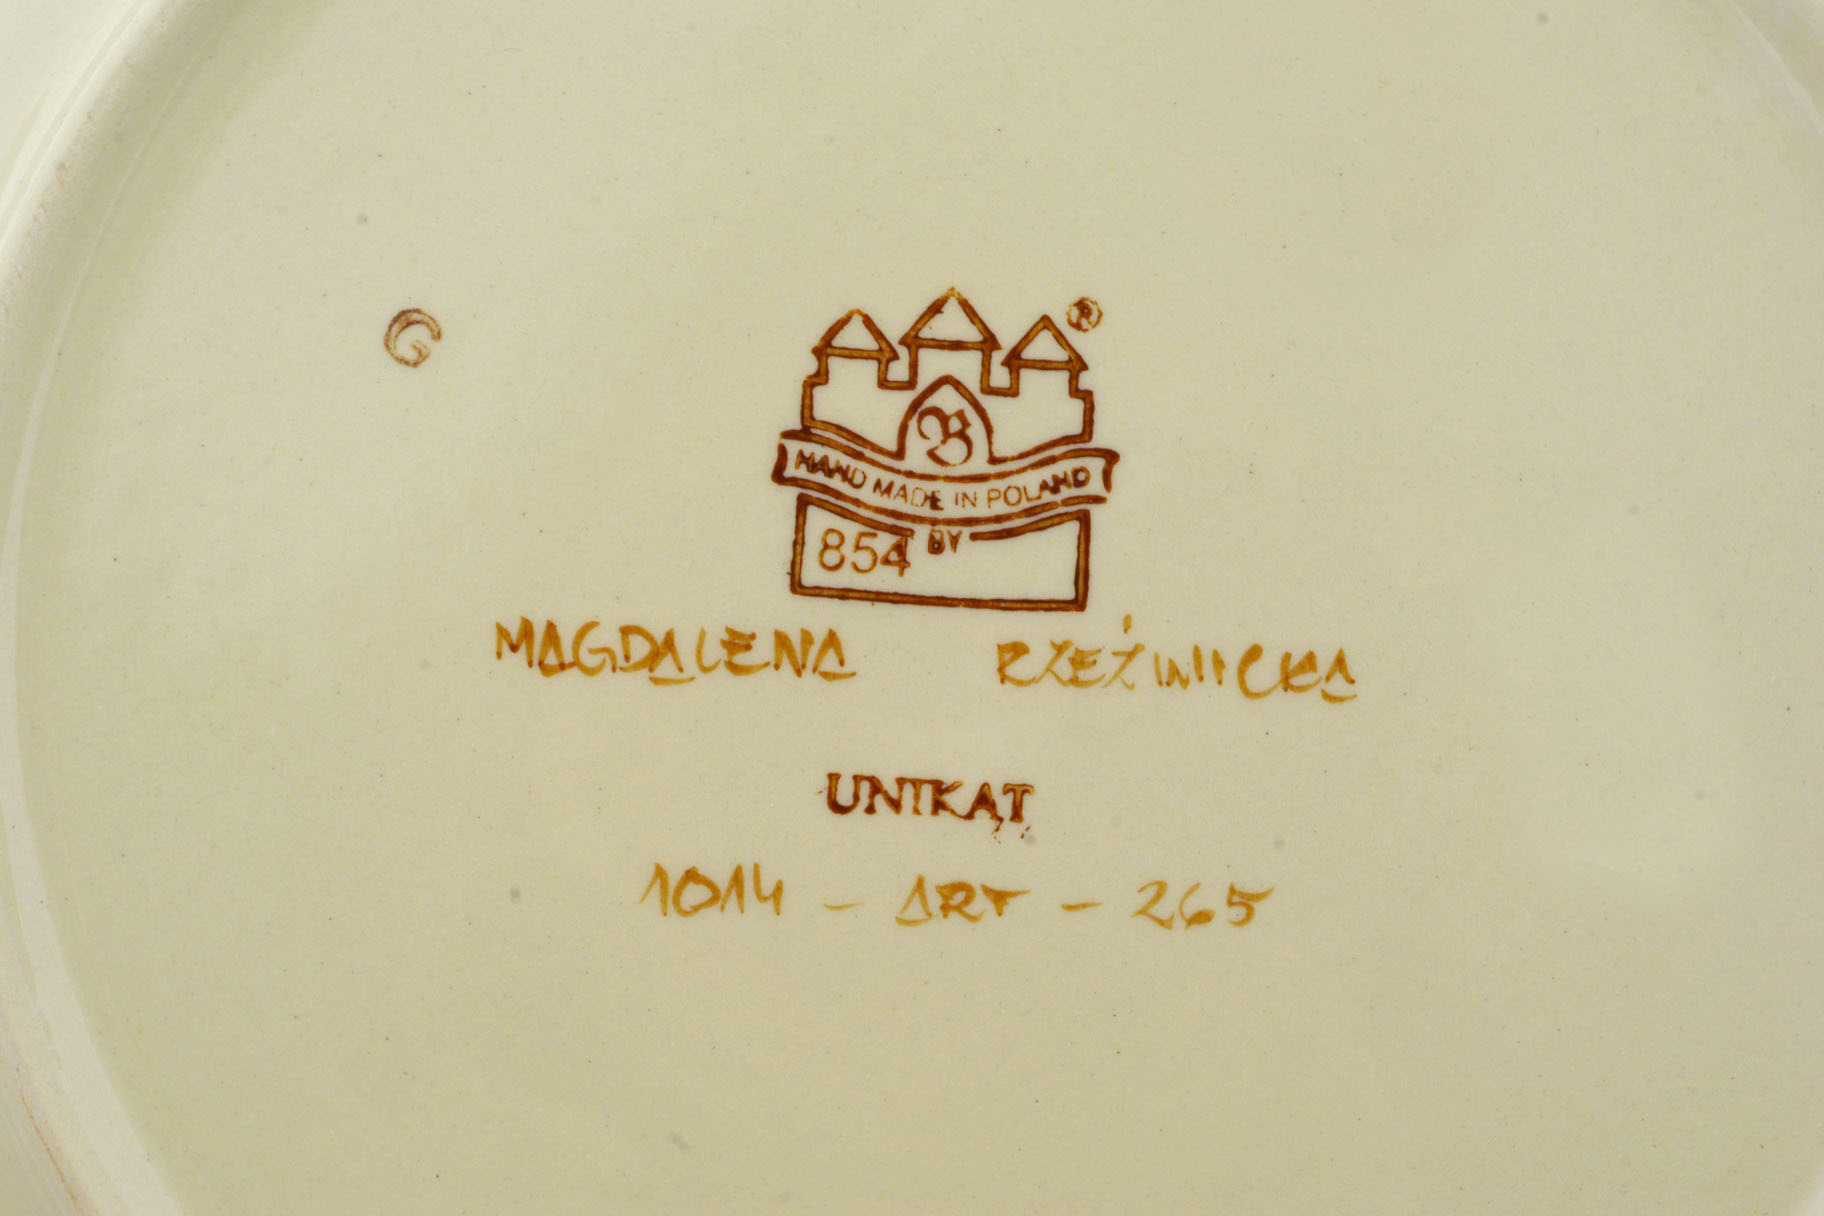 G
®
B
HAND MADE IN POLAND
BY
854
MAGDALENA RZEŹNICKA
UNIKAT
1014 - ART - 265